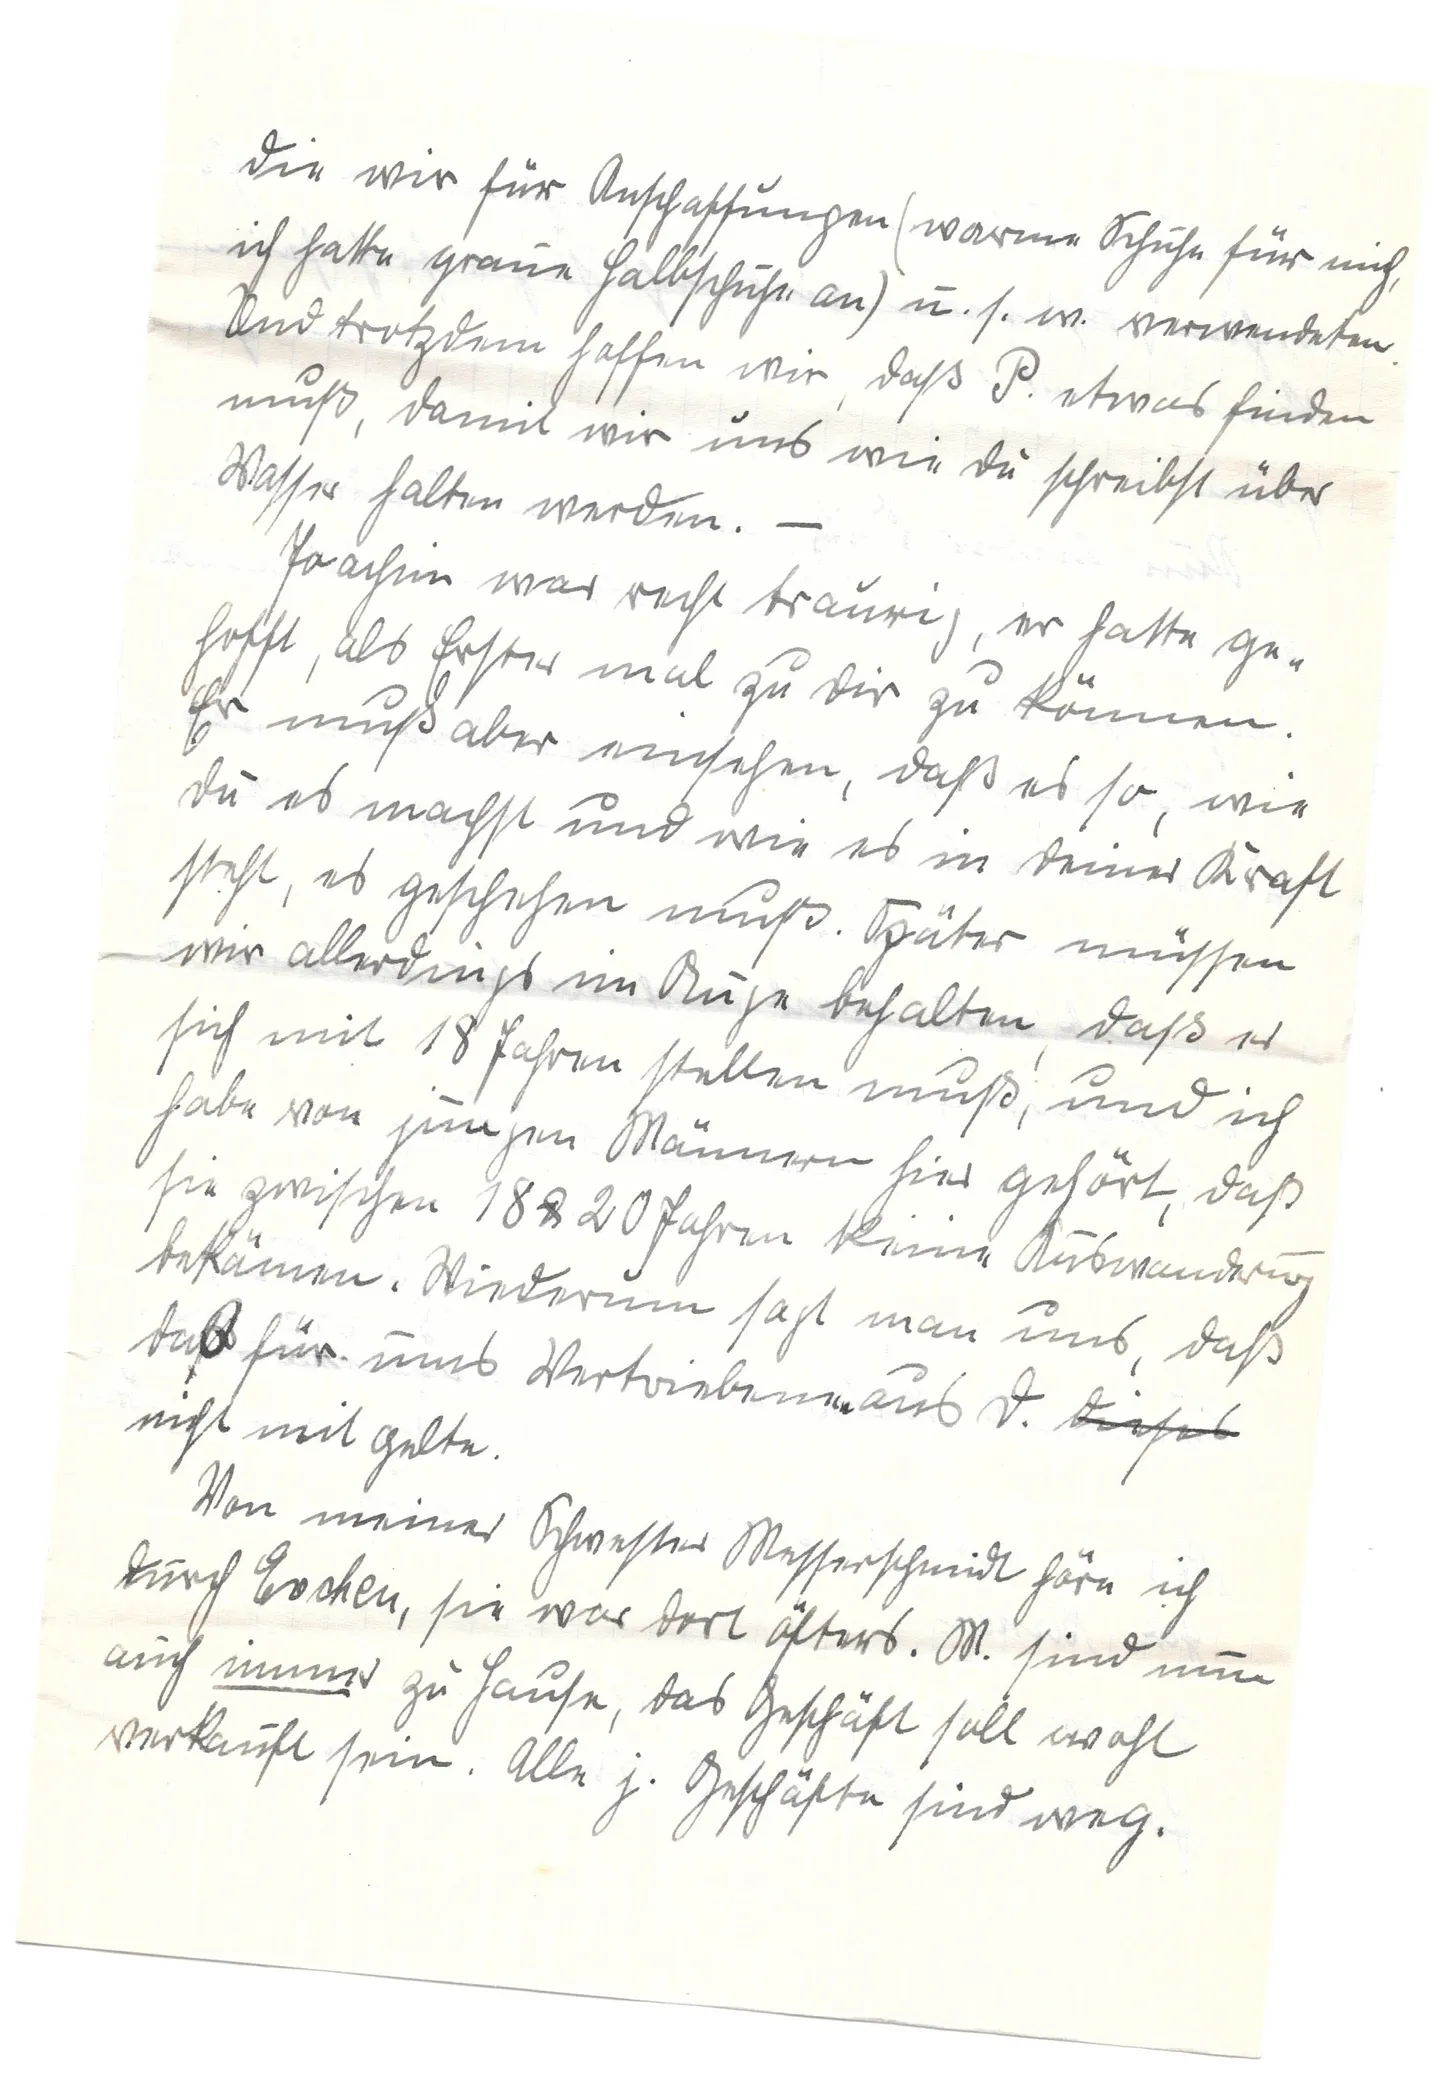 die wir für Anschaffungen (warme Schuhe für mich,
ich hatte graue Halbschuhe an) u. s. w. verwendeten.
Und trotzdem hoffen wir, daß P. etwas finden
muß, damit wir uns wie du schreibst über
Wasser halten werden. —
Joachim war recht traurig, er hatte ge-
hofft, als Erster mal zu dir zu können.
Er muß aber einsehen, daß es so, wie
du es machst und wie es in deiner Kraft
steht, es geschehen muß. Später müssen
wir allerdings im Auge behalten, daß er
sich mit 18 Jahren stellen muß, und ich
habe von jungen Männern hier gehört, daß
sie zwischen 18 & 20 Jahren keine Auswanderung
bekämen. Wiederum sagt man uns, daß
daß für uns Vertriebene aus D. dieses
nicht mit gelte.
Von meiner Schwester Messerschmidt höre ich
durch Evchen, sie war dort öfters. M. sind nun
auch immer zu Hause, das Geschäft soll wohl
verkauft sein. Alle j. Geschäfte sind weg.